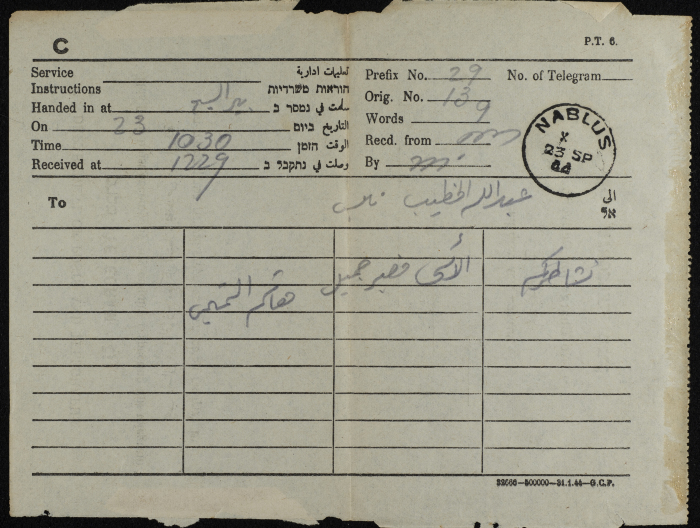 C
P.T. 6.
Service تعليمات ادارية
Instructions הוראות משרדיות
Handed in at سلمت في נמסר ב
On 23 التاريخ ביום
Time 1030 الوقت הזמן
Received at 1229 وصلت في נתקבל ב
Prefix No. 29 No. of Telegram
Orig. No. 13
Words 9
Recd. from
By
NABLUS
X
23 SP
44
To عبد الله الخطيب نابلس الى
אל
نشاطركم الأسى فصبر جميل
هاشم
32086—500000—31.1.44—G.C.P.